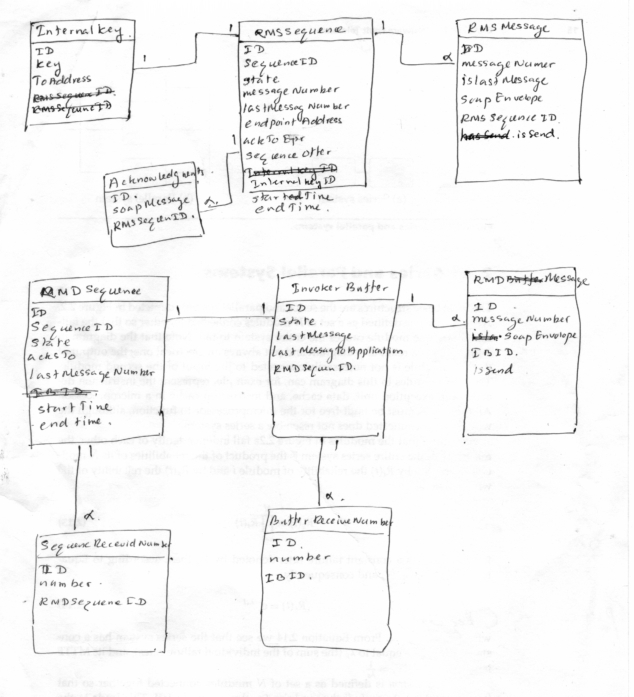 Internal Key
ID
key
To Address
RMS Sequence ID
RMS Sequence ID
1
1
RMS Sequence
ID
Sequence ID
state
message Number
last Messag Number
endpoint Address
ackTo Epr
Sequence Offer
Internal key ID
Internal key ID
started Time
end Time.
1
α
RMS Message
ID
message Numer
is last Message
Soap Envelope
RMS Sequence ID.
has Send. is Send.
1
α.
Acknowledgment
ID.
soap Message
RMS Sequen ID.
RMD Sequence
ID
Sequence ID
State
acksTo
last Message Number
IBID.
start Time
end time.
1
1
Invoker Buffer
ID
State
Last Message
Last Messag To Application
RMD Sequen ID.
1
α
RMD Buffer Message
ID
message Number
Soap Envelope
IBID.
is Send
1
α.
Sequene Receevid Number
ID
number.
RMD Sequene ID
1
α.
Buffer Receive Number
ID.
number
IBID.